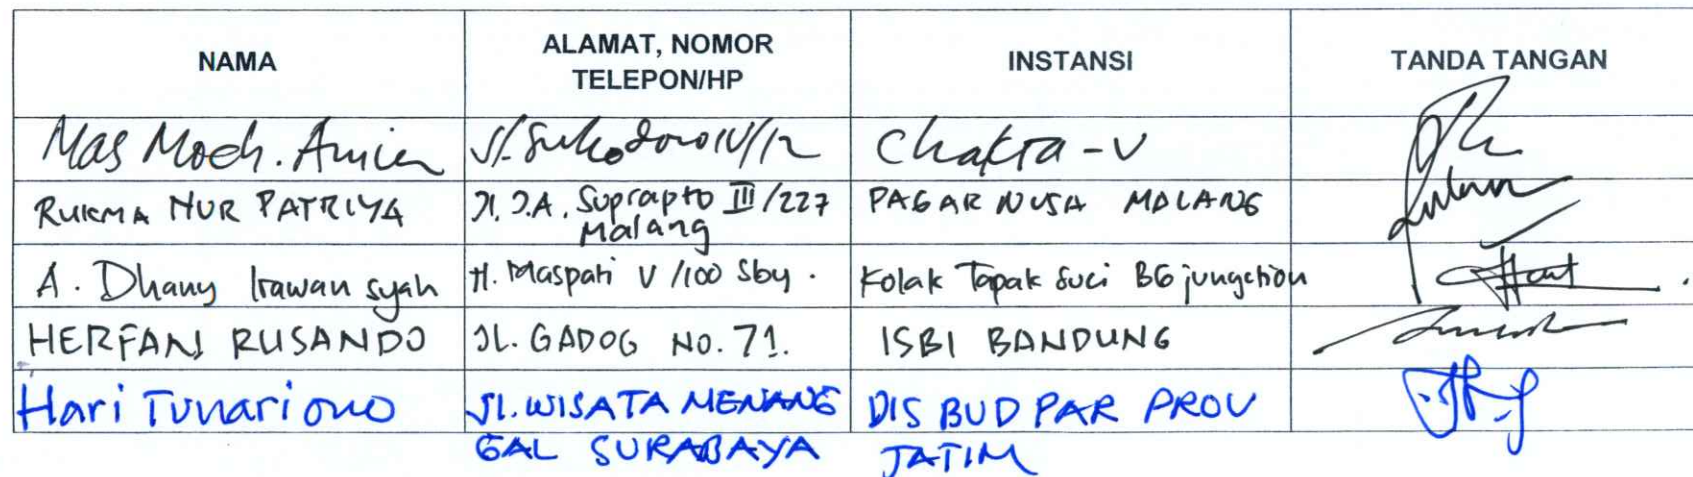 NAMA ALAMAT, NOMOR TELEPON/HP INSTANSI TANDA TANGAN
Mas Moch. Amien Jl. Sukodono IV/12 Chakra-V
RUKMA NUR PATRIYA Jl. J.A. Suprapto III/227 Malang PAGAR NUSA MALANG
A. Dhany Irawan syah Jl. Maspati V/100 Sby. Kolak Tapak Suci BG jungction
HERFAN RUSANDO JL. GADOG NO. 71. ISBI BANDUNG
Hari Tunariono Jl. WISATA MENANG GAL SURABAYA DIS BUD PAR PROV JATIM